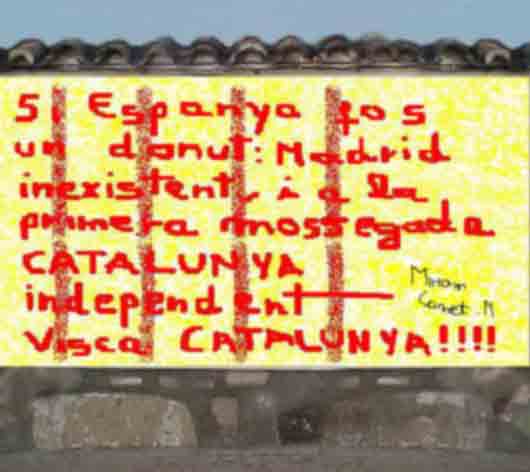 Si Espanya fos
un donut: Madrid
inexistent, i a la
primera mossegada
CATALUNYA
independent
Visca CATALUNYA!!!!
Miriam
Canet . M